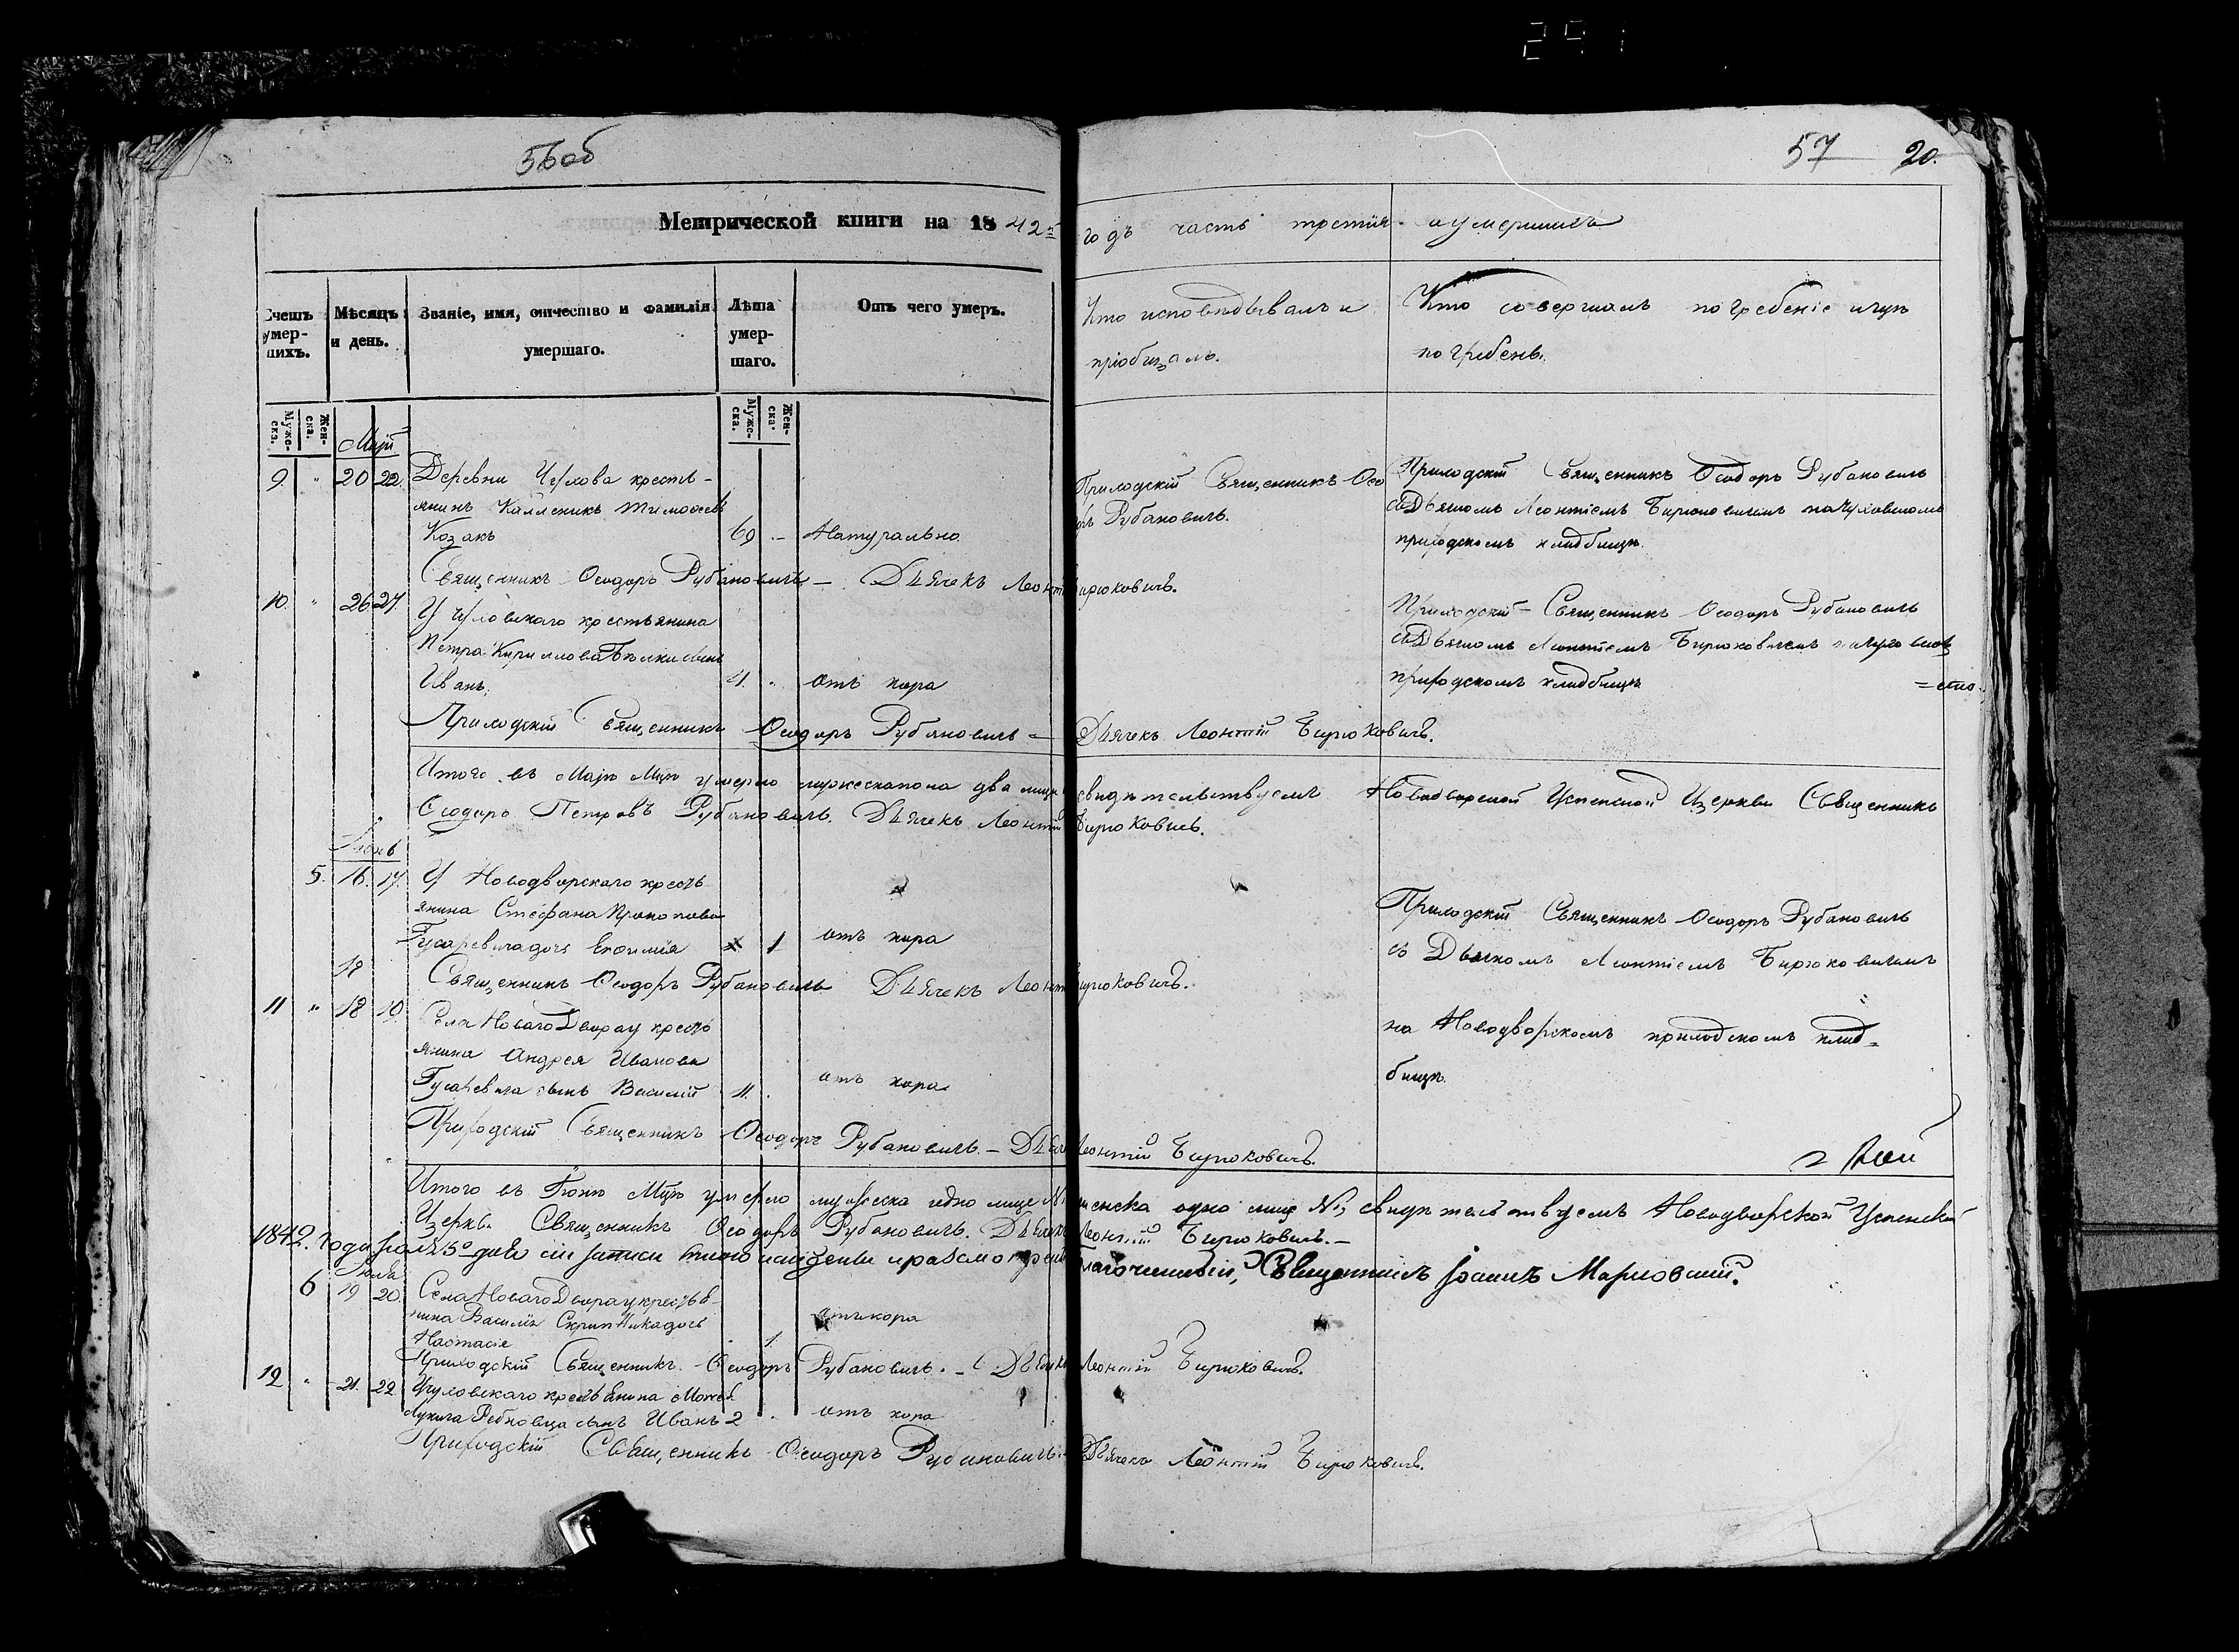 291
56 об
57 20.
Метрической книги на 1842й
годъ часть третия о умершихъ
Счетъ умер-шихъ.
Мѣсяцъ и день.
Званіе, имя, отчество и фамилія умершаго.
Лѣта умер-шаго.
Отъ чего умеръ.
Кто исповѣдывалъ и
пріобщалъ.
Кто совершалъ погребеніе и гдѣ
погребенъ.
Муже-ска.
Жен-ска.
Муже-ска.
Жен-ска.
Май
9. " 20 22. Деревни Чухова кресть-
янинъ Каленикъ Тимофеевъ
Козакъ 69 - Натурально.
Приходскій Священникъ Ѳео
Рубановичъ.
Приходскій Священникъ Ѳеодоръ Рубановичъ
съ Дьячкомъ Леонтіемъ Бирюковичемъ на Чуховскомъ
приходскомъ кладбищѣ.
Священникъ Ѳеодоръ Рубановичъ — Дьячекъ Леонт Бирюковичъ.
10. " 26 27. У Чуховскаго крестьянина
Петра Кириллова сынъ
Иванъ. 4. " отъ кора
Приходскій Священникъ Ѳеодоръ Рубановичъ
съ Дьячкомъ Леонтіемъ Бирюковичемъ на Чуховск
приходскомъ кладбищѣ
Приходскій Священникъ Ѳеодоръ Рубановичъ = Дьячекъ Леонтій Бирюковичъ.
Итого въ Маѣ Мцѣ умерло мужеска пола два лица свидѣтельствуемъ Новодворской Успенской Церкви Священникъ
Ѳеодоръ Петровъ Рубановичъ. Дьячекъ Леонтій Бирюковичъ.
Іюнь
5. 16. 17. У Новодворскаго кресть
янина Стефана Прокопова
Гусаревича дочь Евфимія 1 отъ кора
Приходскій Священникъ Ѳеодоръ Рубановичъ
съ Дьячкомъ Леонтіемъ Бирюковичемъ
18
Священникъ Ѳеодоръ Рубановичъ Дьячекъ Леонт Бирюковичъ.
11 " 18 19. Села Новаго Двора у кресть
янина Андрея Иванова
Гусаревича сынъ Василій 4. . отъ кора
на Новодворскомъ приходскомъ клад=
бищѣ.
Приходскій Священникъ Ѳеодоръ Рубановичъ. — Дьяче Леонтій Бирюковичъ.
Итого въ Іюнѣ Мцѣ умерло мужеска одно лице женска одно лице №, свидѣтельствуемъ Новодворской Успенской
Церкви Священникъ Ѳеодоръ Рубановичъ. Дьячекъ Леонтій Бирюковичъ. —
1842. года сіи записи Благочинный, Священникъ Іоаннъ
Іюль
6 19 20. Села Новаго Двора у крестья
нина Василія дочь
Настасіе 1. отъ кора
Приходскій Священникъ Ѳеодоръ Рубановичъ. — Дьячекъ Леонтій Бирюковичъ.
12 " 21. 22 Чуховскаго крестьянина
сынъ Иванъ 2 . отъ кора
Приходскій Священникъ Ѳеодоръ Рубановичъ. Дьячекъ Леонтій Бирюковичъ.